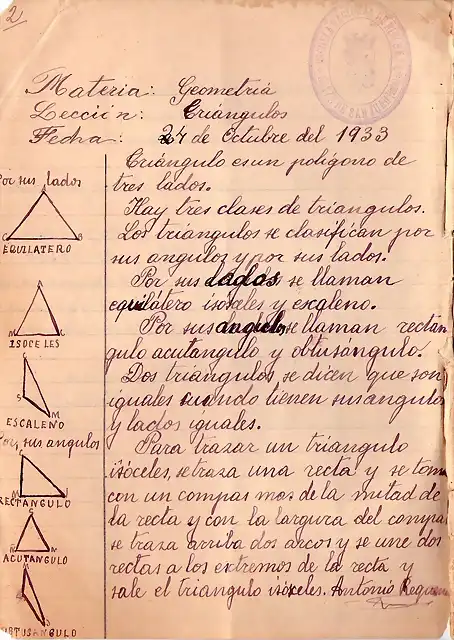 2
Materia: Geometria
Lección: Triángulos
Fecha: 24 de Octubre del 1933
Triángulo es un polígono de
tres lados.
Hay tres clases de triangulos.
Los triángulos se clasifican por
sus angulos y por sus lados.
Por sus lados se llaman
equilátero isóceles y escaleno.
Por sus angulos se llaman rectan
gulo acutangulo y obtusángulo.
Dos triangulos se dicen que son
iguales cuando tienen sus angulos
y lados iguales.
Para trazar un triangulo
isóceles, se traza una recta y se toma
con un compas mas de la mitad de
la recta y con la largura del compas
se traza arriba dos arcos y se une dos
rectas a los extremos de la recta y
sale el triangulo isóceles. Antonio
Por sus lados
EQUILATERO
ISOCELES
ESCALENO
Por sus angulos
RECTANGULO
ACUTANGULO
OBTUSANGULO